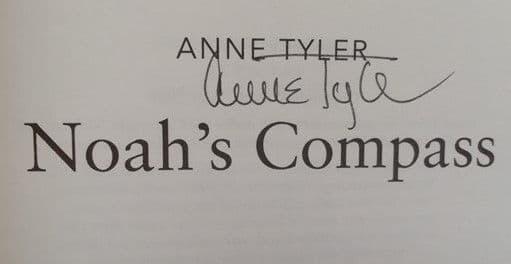 ANNE TYLER
Anne Tyler
Noah's Compass